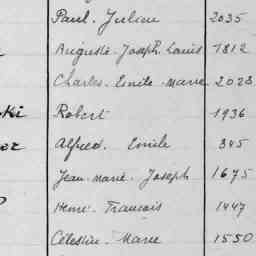 Paul. Julien 2035
Auguste. Joseph. Louis 1812
Charles. Emile. Marie 2023
ki Robert 1936
er Alfred. Emile 345
Jean. Marie. Joseph 1675
Henri. Francois 1447
Célestin. Marie 1550